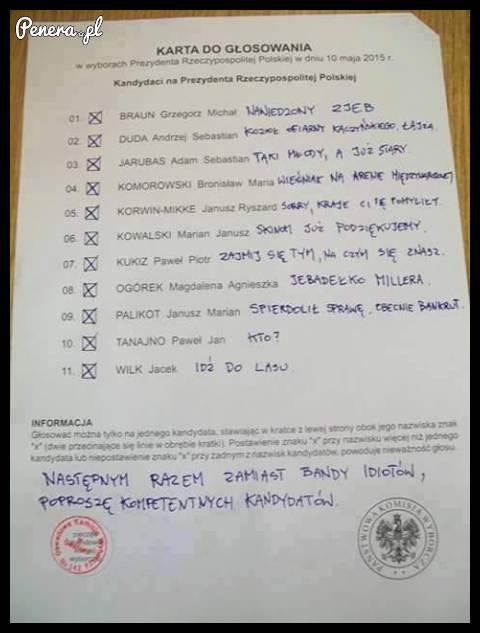 Penera.pl
KARTA DO GŁOSOWANIA
w wyborach Prezydenta Rzeczypospolitej Polskiej w dniu 10 maja 2015 r.
Kandydaci na Prezydenta Rzeczypospolitej Polskiej
01. BRAUN Grzegorz Michał NAWIEDZONY ZJEB
02. DUDA Andrzej Sebastian KOZIOŁ OFIARNY KACZYŃSKIEGO. ŁAJZA.
03. JARUBAS Adam Sebastian TAKI MŁODY, A JUŻ STARY
04. KOMOROWSKI Bronisław Maria WIEŚNIAK NA ARENIE MIĘDZYNARODOWEJ
05. KORWIN-MIKKE Janusz Ryszard SORRY, KRAJE CI SIĘ POMYLIŁY.
06. KOWALSKI Marian Janusz SKINOM JUŻ PODZIĘKUJEMY.
07. KUKIZ Paweł Piotr ZAJMIJ SIĘ TYM, NA CZYM SIĘ ZNASZ.
08. OGÓREK Magdalena Agnieszka JEBADEŁKO MILLERA.
09. PALIKOT Janusz Marian SPIERDOLIŁ SPRAWĘ. OBECNIE BANKRUT.
10. TANAJNO Paweł Jan KTO?
11. WILK Jacek IDŹ DO LASU.
INFORMACJA
Głosować można tylko na jednego kandydata, stawiając w kratce z lewej strony obok jego nazwiska znak
"x" (dwie przecinające się linie w obrębie kratki). Postawienie znaku "x" przy nazwisku więcej niż jednego
kandydata lub niepostawienie znaku "x" przy żadnym z nazwisk kandydatów, powoduje nieważność głosu.
NASTĘPNYM RAZEM ZAMIAST BANDY IDIOTÓW,
POPROSZĘ KOMPETENTNYCH KANDYDATÓW.
PAŃSTWOWA KOMISJA WYBORCZA